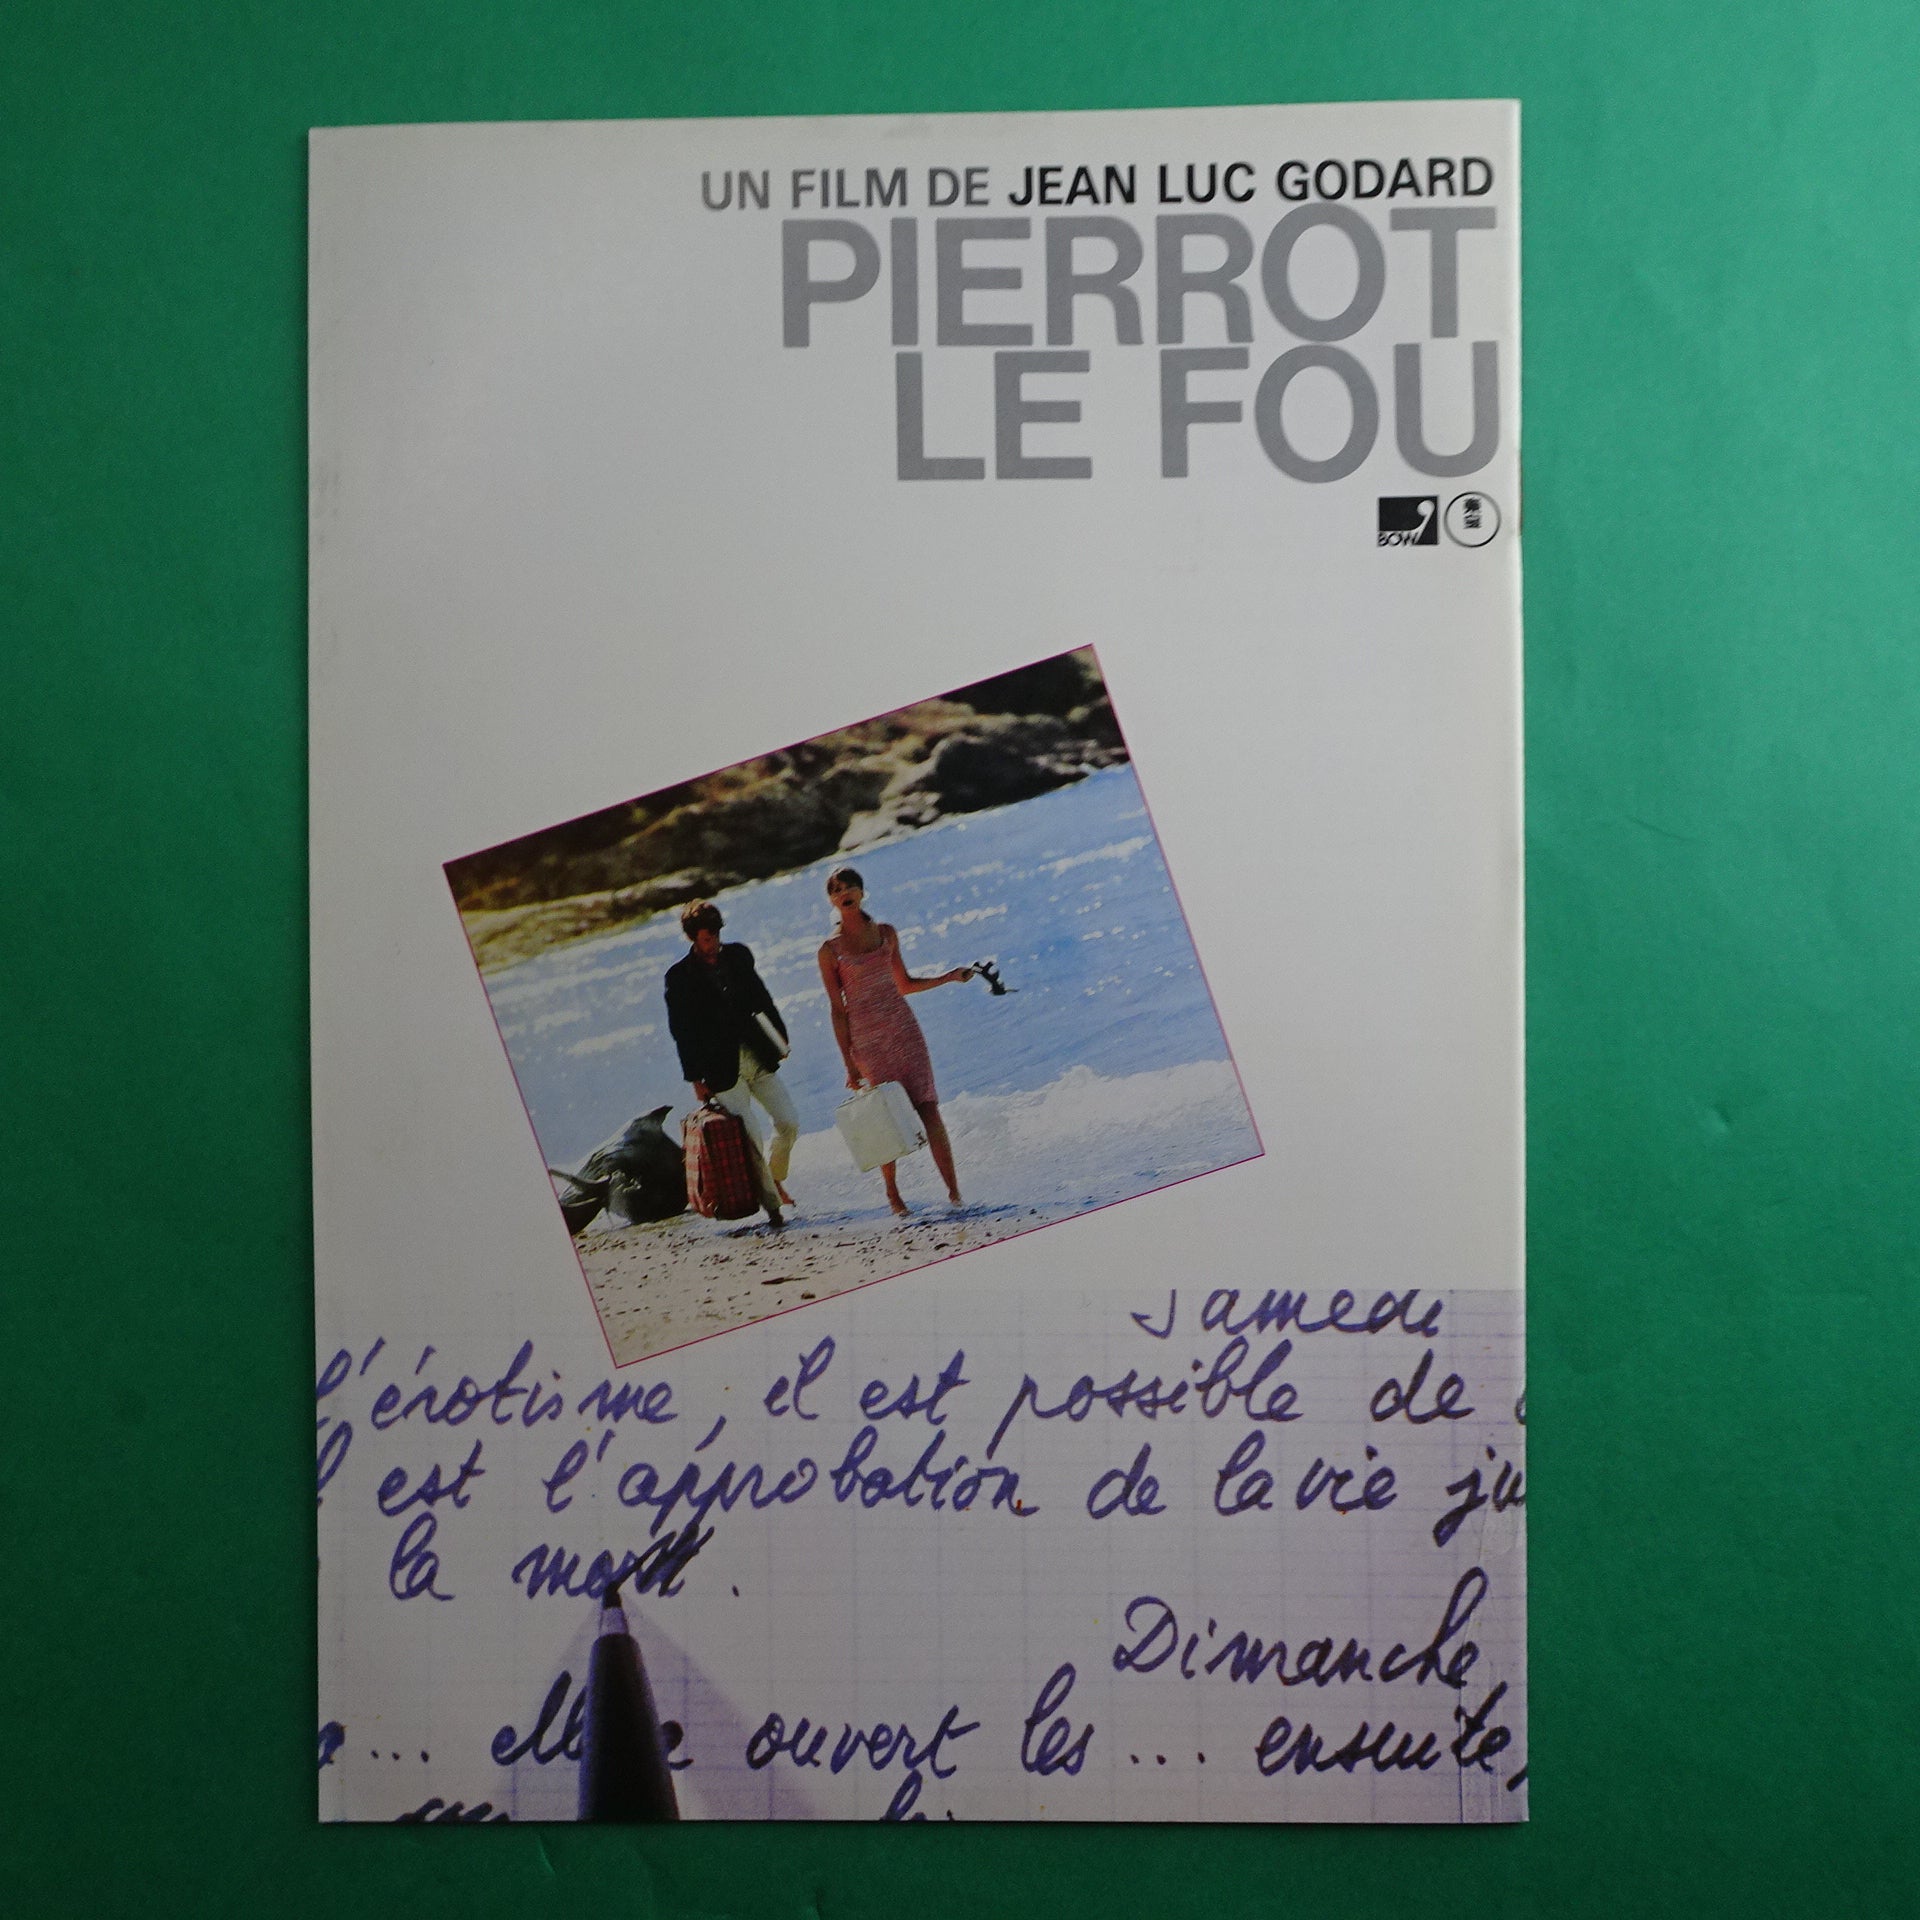 UN FILM DE JEAN LUC GODARD
PIERROT
LE FOU
BOW
Samedi
l'érotisme, il est possible de
est l'approbation de la vie ju
la mort.
Dimanche
... elle ouvert les ... ensuite,